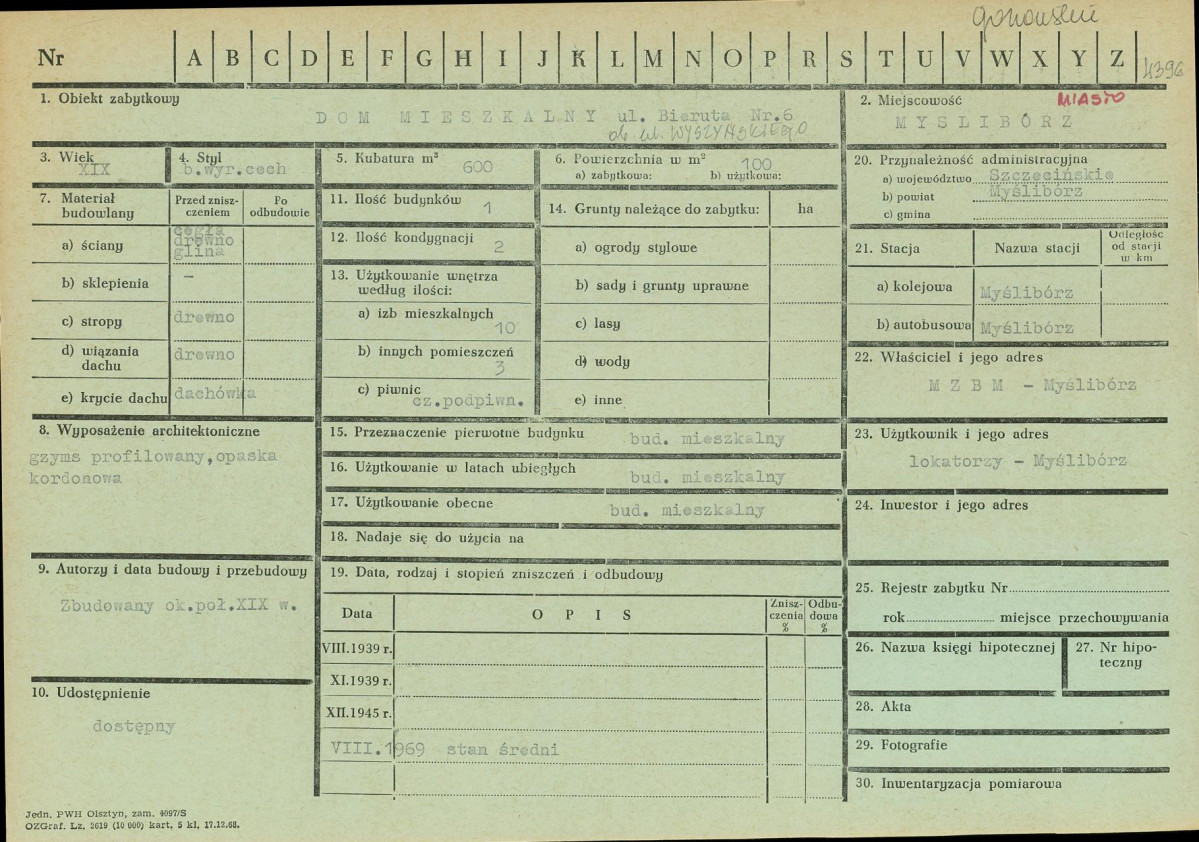 Gorzowskie
Nr A B C D E F G H I J K L M N O P R S T U V W X Y Z 4396
1. Obiekt zabytkowy
DOM MIESZKALNY ul. Bieruta Nr.6
ob. ul. WYSZYŃSKIEGO
2. Miejscowość MIASTO
MYŚLIBÓRZ
3. Wiek
XIX
4. Styl
b.wyr.cech
5. Kubatura m³ 600
6. Powierzchnia w m² 100
a) zabytkowa: b) użytkowa:
20. Przynależność administracyjna
a) województwo Szczecińskie
b) powiat Myślibórz
c) gmina
7. Materiał budowlany
Przed zniszczeniem
Po odbudowie
a) ściany cegła drewno glina
b) sklepienia –
c) stropy drewno
d) wiązania dachu drewno
e) krycie dachu dachówka
11. Ilość budynków 1
12. Ilość kondygnacji 2
13. Użytkowanie wnętrza
według ilości:
a) izb mieszkalnych 10
b) innych pomieszczeń 3
c) piwnic cz.podpiwn.
14. Grunty należące do zabytku: ha
a) ogrody stylowe
b) sady i grunty uprawne
c) lasy
d) wody
e) inne
21. Stacja Nazwa stacji Odległość od stacji w km
a) kolejowa Myślibórz
b) autobusowa Myślibórz
22. Właściciel i jego adres
M Z B M – Myślibórz
8. Wyposażenie architektoniczne
gzyms profilowany,opaska
kordonowa
15. Przeznaczenie pierwotne budynku bud. mieszkalny
16. Użytkowanie w latach ubiegłych bud. mieszkalny
17. Użytkowanie obecne bud. mieszkalny
18. Nadaje się do użycia na
23. Użytkownik i jego adres
lokatorzy – Myślibórz
24. Inwestor i jego adres
9. Autorzy i data budowy i przebudowy
Zbudowany ok.poł.XIX w.
10. Udostępnienie
dostępny
19. Data, rodzaj i stopień zniszczeń i odbudowy
Data OPIS Zniszczenia % Odbudowa %
VIII.1939 r.
XI.1939 r.
XII.1945 r.
VIII.1969 stan średni
25. Rejestr zabytku Nr
rok miejsce przechowywania
26. Nazwa księgi hipotecznej
27. Nr hipoteczny
28. Akta
29. Fotografie
30. Inwentaryzacja pomiarowa
Jedn. PWH Olsztyn, zam. 4097/S
OZGraf. Lz. 2619 (10 000) kart. 5 kl. 17.12.68.